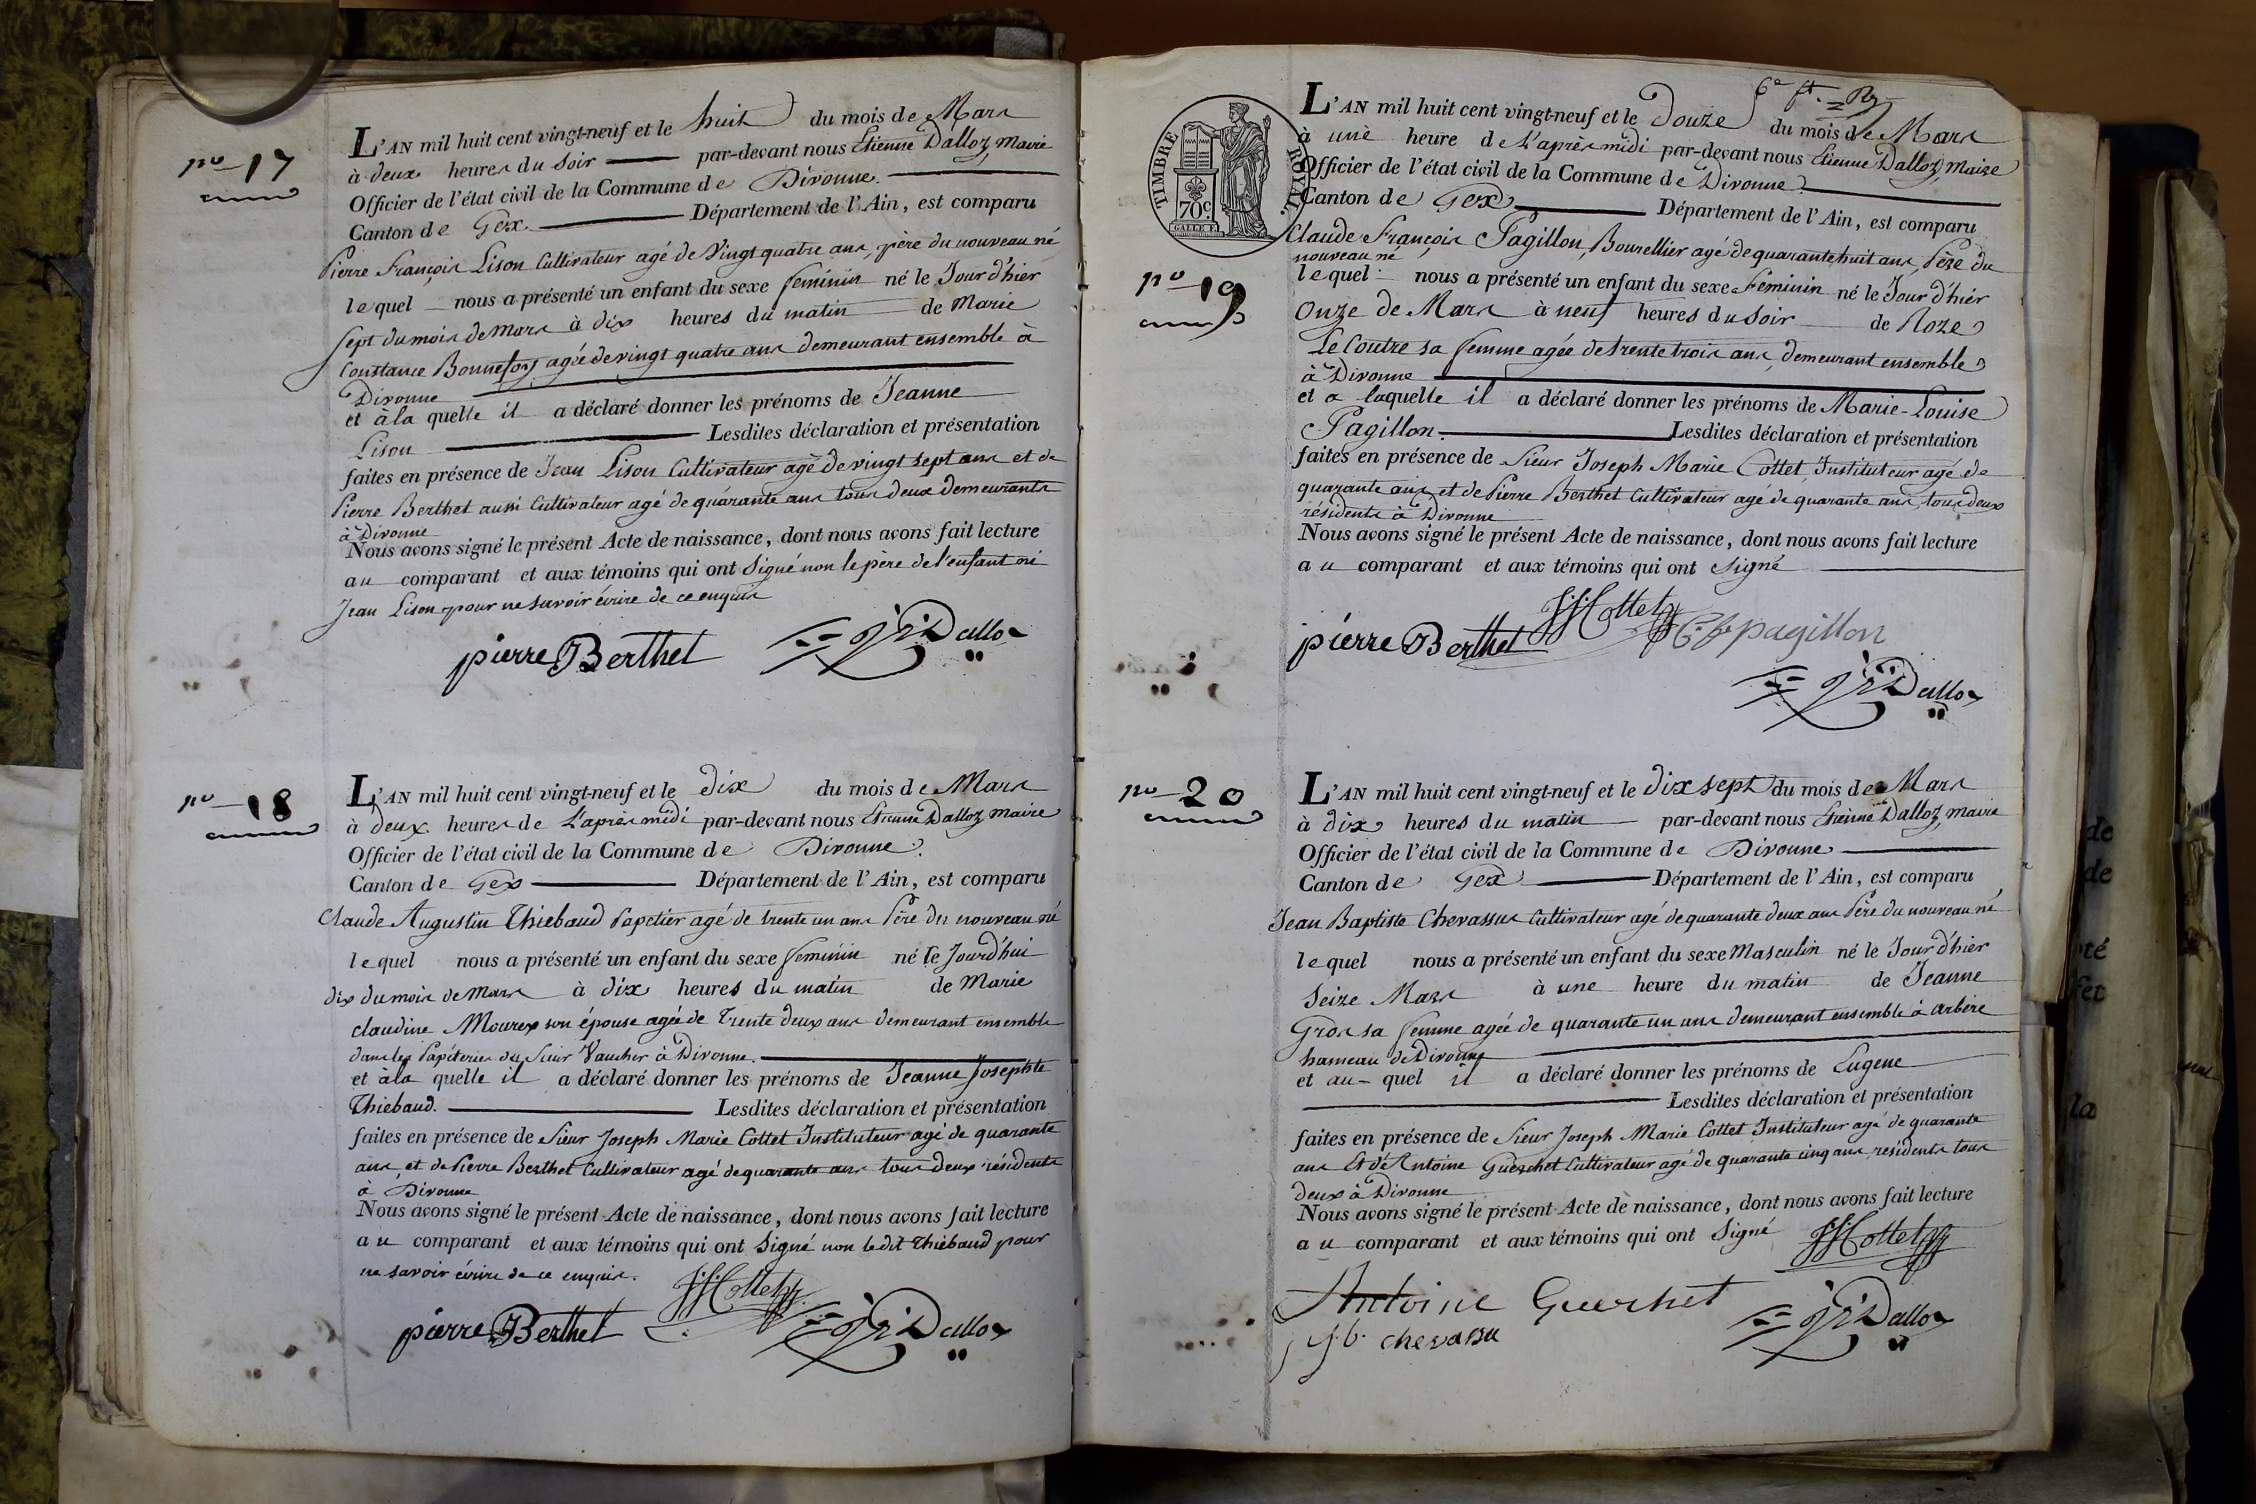 no 17
L'AN mil huit cent vingt-neuf et le huit du mois de Mars
à deux heures du soir par-devant nous Etienne Dalloz, maire
Officier de l'état civil de la Commune de Divonne.
Canton de Gex Département de l'Ain, est comparu
Pierre François Lison Cultivateur agé de vingt quatre ans, père du nouveau né
lequel nous a présenté un enfant du sexe feminin né le Jour d'hier
sept du mois de mars à dix heures du matin de Marie
Constance Bonnefoy agée de vingt quatre ans demeurant ensemble à
Divonne
et à la quelle il a déclaré donner les prénoms de Jeanne
Lison Lesdites déclaration et présentation
faites en présence de Jean Lison Cultivateur agé de vingt sept ans et de
Pierre Berthet aussi Cultivateur agé de quarante ans tous deux demeurants
à Divonne
Nous avons signé le présent Acte de naissance, dont nous avons fait lecture
au comparant et aux témoins qui ont signé non le père de l'enfant ni
Jean Lison pour ne savoir écrire de ce enquis
pierre Berthet Dalloz
no 18
L'AN mil huit cent vingt-neuf et le dix du mois de Mars
à deux heures de l'après midi par-devant nous Etienne Dalloz maire
Officier de l'état civil de la Commune de Divonne.
Canton de Gex Département de l'Ain, est comparu
Claude Augustin Thiebaud Papetier agé de trente un ans Père du nouveau né
lequel nous a présenté un enfant du sexe feminin né le Jourd'hui
dix du mois de Mars à dix heures du matin de Marie
claudine Mourex son épouse agée de trente deux ans demeurant ensemble
dans les Papéteries du Sieur Vaucher à Divonne.
et à la quelle il a déclaré donner les prénoms de Jeanne Josephte
Thiebaud. Lesdites déclaration et présentation
faites en présence de Sieur Joseph Marie Cottet Instituteur agé de quarante
ans et de Pierre Berthet Cultivateur agé de quarante ans tous deux résidents
à Divonne
Nous avons signé le présent Acte de naissance, dont nous avons fait lecture
au comparant et aux témoins qui ont signé non le dit Thiebaud pour
ne savoir écrire de ce enquis.
JJ Cottet
pierre Berthet Dalloz
TIMBRE ROYAL
70c
no 19
L'AN mil huit cent vingt-neuf et le Douze du mois de Mars
à une heure de l'après midi par-devant nous Etienne Dalloz, Maire
Officier de l'état civil de la Commune de Divonne
Canton de Gex Département de l'Ain, est comparu
Claude François Pagillon, Bourellier agé de quarante huit ans, Père du
nouveau né
lequel nous a présenté un enfant du sexe Féminin né le Jour d'hier
Onze de Mars à neuf heures du soir de Roze
Le Coutre sa femme agée de trente trois ans, demeurant ensemble
à Divonne
et a laquelle il a déclaré donner les prénoms de Marie-Louise
Pagillon. Lesdites déclaration et présentation
faites en présence de Sieur Joseph Marie Cottet, Instituteur agé de
quarante ans, et de Pierre Berthet Cultivateur agé de quarante ans, tous deux
résidents à Divonne
Nous avons signé le présent Acte de naissance, dont nous avons fait lecture
au comparant et aux témoins qui ont signé
pierre Berthet JJ Cottet C. f. pagillon
Dalloz
no 20
L'AN mil huit cent vingt-neuf et le dix sept du mois de Mars
à dix heures du matin par-devant nous Etienne Dalloz, maire
Officier de l'état civil de la Commune de Divonne
Canton de Gex Département de l'Ain, est comparu
Jean Baptiste Chevassus Cultivateur agé de quarante deux ans Père du nouveau né
lequel nous a présenté un enfant du sexe Masculin né le Jour d'hier
Seize Mars à une heure du matin de Jeanne
Gros sa femme agée de quarante un ans demeurant ensemble à Arbère
hameau de Divonne
et au-quel il a déclaré donner les prénoms de Eugene
Lesdites déclaration et présentation
faites en présence de Sieur Joseph Marie Cottet Instituteur agé de quarante
ans Et d'Antoine Guerchet Cultivateur agé de quarante cinq ans, résidents tous
deux à Divonne
Nous avons signé le présent Acte de naissance, dont nous avons fait lecture
au comparant et aux témoins qui ont signé JJ Cottet
Antoine Guerchet Dalloz
j. b. chevassu